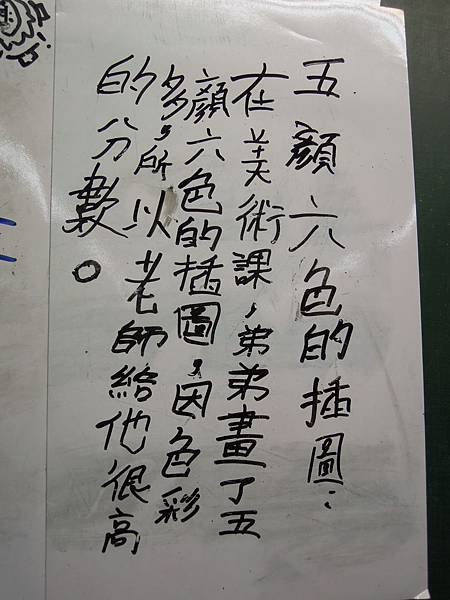 五顏六色的插圖：
在美術課，弟弟畫了五
顏六色的插圖，因色彩
多，所以老師給他很高
的分數。